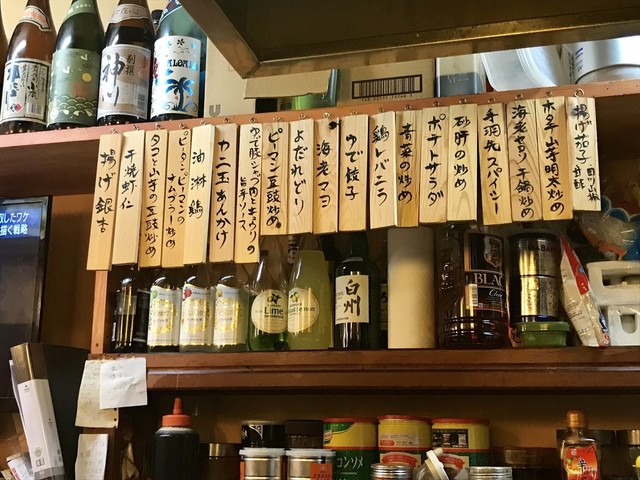 揚げ茄子
甘酢
ホタテ山芋明太炒め
海老セロリ干鍋炒め
手羽先スパイシー
砂肝の炒め
ポテトサラダ
青菜の炒め
鶏レバニラ
ゆで餃子
海老マヨ
よだれどり
ピーマン豆豉炒め
ゆで豚シャブ肉とキュウリの
旨辛ソース
カニ玉あんかけ
油淋鶏
ピータンピーマンの
タコと山芋の豆豉炒め
干焼蝦仁
揚げ銀杏
神川
Lime
白州
BLACK
コンソメ